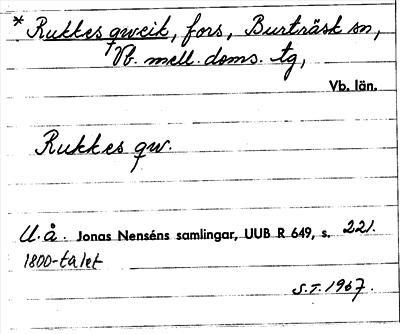 * Rukkes qweik, fors, Burträsk sn,
Vb. mell. doms. tg,
Vb. län.
Rukkes qw.
U.å. Jonas Nenséns samlingar, UUB R 649, s. 221.
1800-talet
S.T. 1967.